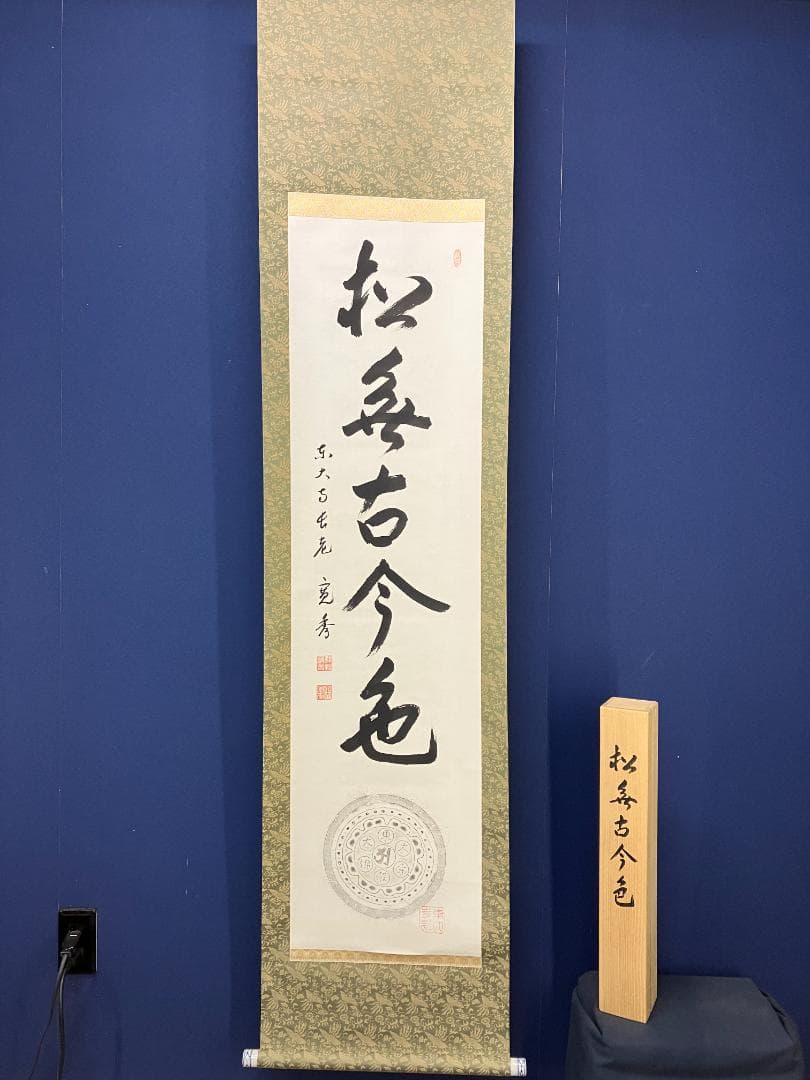 松無古今色
東大寺長老 寛秀
松無古今色